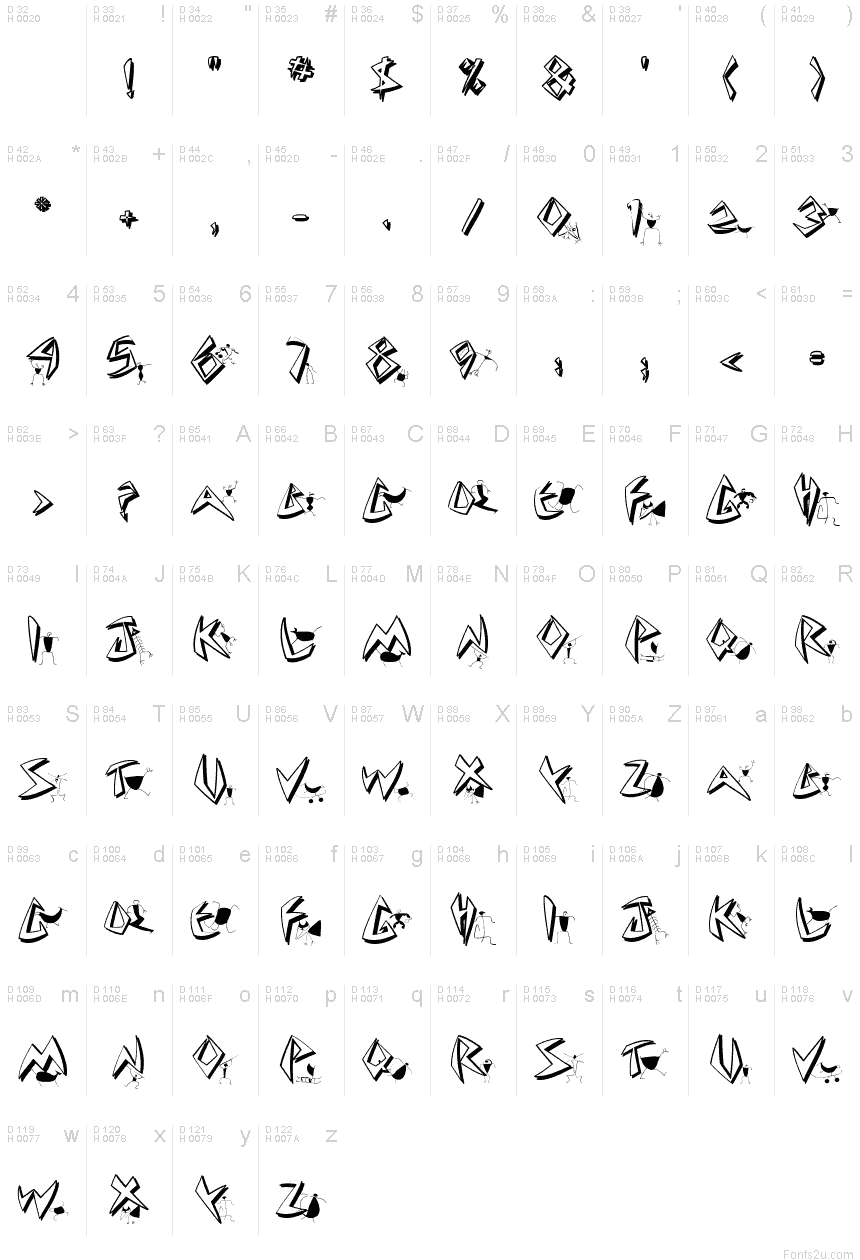 D 32 D 33 ! D 34 " D 35 # D 36 $ D 37 % D 38 & D 39 ' D 40 ( D 41 )
H 0020 H 0021 H 0022 H 0023 H 0024 H 0025 H 0026 H 0027 H 0028 H 0029
! " # $ % & ' ( )
D 42 * D 43 + D 44 , D 45 - D 46 . D 47 / D 48 0 D 49 1 D 50 2 D 51 3
H 002A H 002B H 002C H 002D H 002E H 002F H 0030 H 0031 H 0032 H 0033
* + , - . / 0 1 2 3
D 52 4 D 53 5 D 54 6 D 55 7 D 56 8 D 57 9 D 58 : D 59 ; D 60 < D 61 =
H 0034 H 0035 H 0036 H 0037 H 0038 H 0039 H 003A H 003B H 003C H 003D
4 5 6 7 8 9 : ; < =
D 62 > D 63 ? D 65 A D 66 B D 67 C D 68 D D 69 E D 70 F D 71 G D 72 H
H 003E H 003F H 0041 H 0042 H 0043 H 0044 H 0045 H 0046 H 0047 H 0048
> ? A B C D E F G H
D 73 I D 74 J D 75 K D 76 L D 77 M D 78 N D 79 O D 80 P D 81 Q D 82 R
H 0049 H 004A H 004B H 004C H 004D H 004E H 004F H 0050 H 0051 H 0052
I J K L M N O P Q R
D 83 S D 84 T D 85 U D 86 V D 87 W D 88 X D 89 Y D 90 Z D 97 a D 98 b
H 0053 H 0054 H 0055 H 0056 H 0057 H 0058 H 0059 H 005A H 0061 H 0062
S T U V W X Y Z A B
D 99 c D 100 d D 101 e D 102 f D 103 g D 104 h D 105 i D 106 j D 107 k D 108 l
H 0063 H 0064 H 0065 H 0066 H 0067 H 0068 H 0069 H 006A H 006B H 006C
C D E F G H I J K L
D 109 m D 110 n D 111 o D 112 p D 113 q D 114 r D 115 s D 116 t D 117 u D 118 v
H 006D H 006E H 006F H 0070 H 0071 H 0072 H 0073 H 0074 H 0075 H 0076
M N O P Q R S T U V
D 119 w D 120 x D 121 y D 122 z
H 0077 H 0078 H 0079 H 007A
W X Y Z
Fonts2u.com